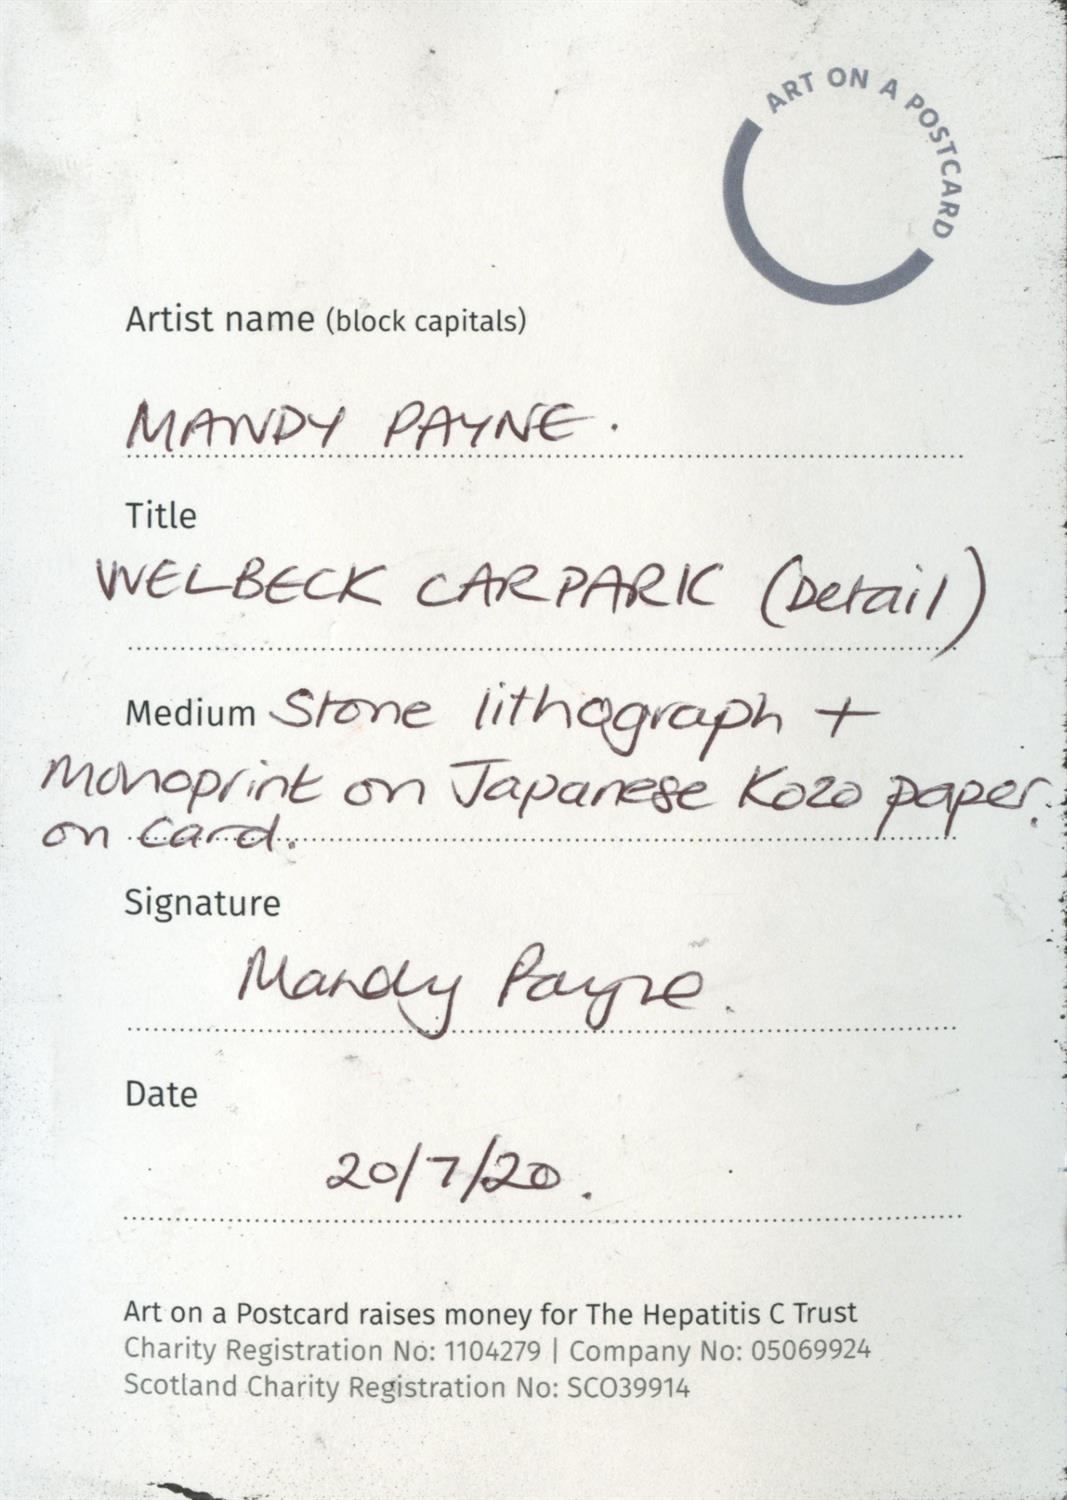 ART ON A POSTCARD
Artist name (block capitals)
MANDY PAYNE.
Title
WELBECK CARPARK (Detail)
Medium Stone lithograph +
Monoprint on Japanese Kozo paper.
on card.
Signature
Mandy Payne.
Date
20/7/20.
Art on a Postcard raises money for The Hepatitis C Trust
Charity Registration No: 1104279 | Company No: 05069924
Scotland Charity Registration No: SCO39914